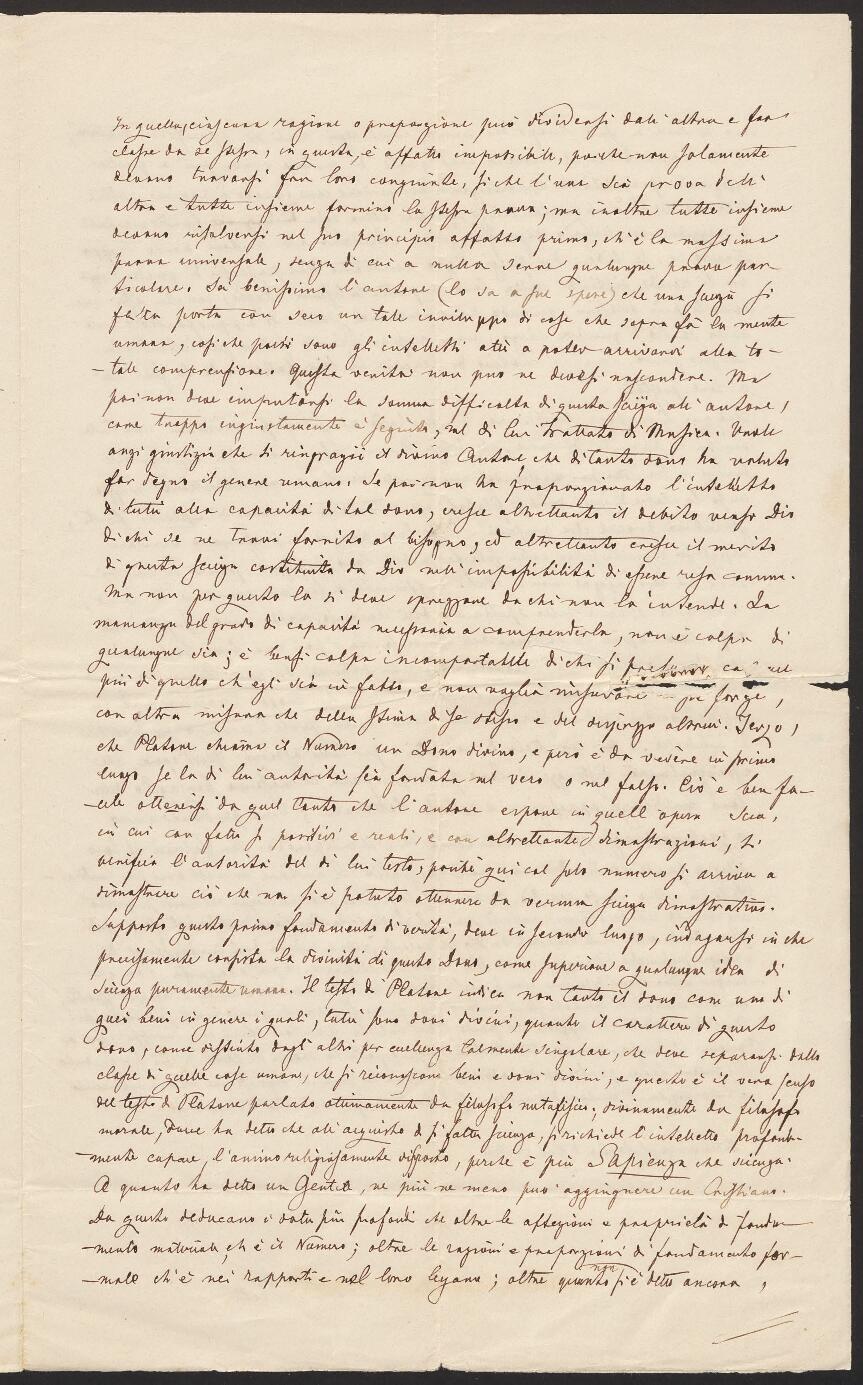 In quella, ciascuna ragione o proporzione può dividersi dall'altra e far
classe da se stessa, in questa, è affatto impossibile, poiche non solamente
devono trovarsi fra loro congiunte, sicche l'una sia prova dell'
altra e tutte insieme formino la stessa prova; ma inoltre tutte insieme
devono risolversi nel suo principio affatto primo, ch'è la massima
prova universale, senza di cui a nulla serve qualunque prova par-
ticolare. Sa benissimo l'autore (lo sa a sue spese) che una scienza si
fatta porta con seco un tale inviluppo di cose che soprafà la mente
umana, cosiche pochi sono gli intelletti atti a poter arrivarvi alla to-
-tale comprensione. Questa verità non può ne devesi nascondere. Ma
poi non deve imputarsi la somma difficoltà di questa scienza all'autore,
come troppo ingiustamente è seguito, nel di lui Trattato di Musica. Vuole
anzi giustizia che si ringrazii il divino Autore, che di tanto dono ha voluto
far degno il genere umano. Se poi non ha proporzionato l'intelletto
di tutti alla capacità di tal dono, cresce altrettanto il debito verso Dio
di chi se ne trovi fornito al bisogno, ed altrettanto cresce il merito
di questa scienza costituita da Dio nell'impossibilità di essere resa comune.
Ma non per questo la si deve sprezzare da chi non la intende. La
mancanza del grado di capacità necessaria a comprenderla, non è colpa di
qualunque sia; è bensì colpa incomportabile di chi si
più di quello ch'egli sia in fatto, e non voglia misurare forze,
con altra misura che della stima di se stesso e del disprezzo altrui. Terzo,
che Platone chiama il Numero un Dono divino, e però è da vedere in primo
luogo se la di lui autorità sia fondata nel vero o nel falso. Ciò è ben fa-
-cile ottenersi da quel tanto che l'autore espone in quell'opera sua,
in cui con fatti sì positivi e reali, e con altrettante dimostrazioni, si
verifica l'autorità del di lui testo, poichè qui col solo numero si arriva a
dimostrare ciò che non si è potuto ottenere da veruna scienza dimostrativa.
Supposto questo primo fondamento di verità, deve in secondo luogo, indagarsi in che
precisamente consista la divinità di questo Dono, come superiore a qualunque idea di
scienza puramente umana. Il testo di Platone indica non tanto il dono come uno di
quei beni in genere i quali, tutti sono doni divini, quanto il carattere di questo
dono, come distinto dagli altri per eccellenza talmente singolare, che deve separarsi dalla
classe di quelle cose umane, che si riconoscono beni e doni divini, e questo è il vero senso
del testo di Platone parlato ottimamente da filosofo metafisico; divinamente da filosofo
morale, dove ha detto che all'acquisto di sì fatta scienza, si richiede l'intelletto profonda-
-mente capace, l'animo religiosamente disposto, perche è più Sapienza che scienza.
A quanto ha detto un Gentile, ne più ne meno può aggiugnere un Cristiano.
Da questo deducano i dotti più profondi che oltre le affezioni e proprietà di fonda-
-mento materiale, ch'è il Numero; oltre le ragioni e proporzioni di fondamento for-
-male ch'è nei rapporti e nel loro legame; oltre quanto non si è detto ancora,